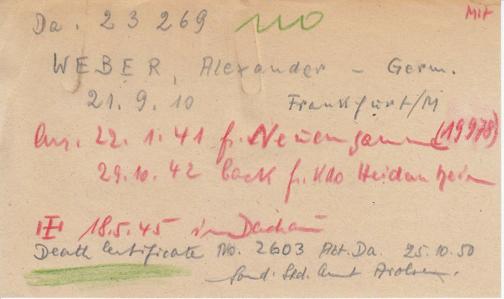 Da. 23269 no Mit
WEBER, Alexander - Germ.
21.9.10 Frankfurt/M
22.1.41 fr. Neuengamme (19978)
29.10.42 back fr. Kdo Heidenheim
18.5.45 in Dachau
Death Certificate No. 2603 Abt. Da. 25.10.50
Sond. Std. Amt Arolsen.